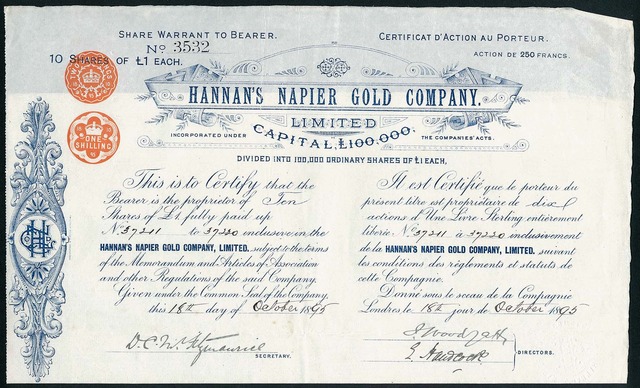 SHARE WARRANT TO BEARER.
CERTIFICAT D'ACTION AU PORTEUR.
No 3532
10 SHARES OF £1 EACH.
ACTION DE 250 FRANCS.
ONE SHILLING
HANNAN'S NAPIER GOLD COMPANY.
LIMITED
INCORPORATED UNDER
THE COMPANIES' ACTS.
CAPITAL, £100,000,
DIVIDED INTO 100,000 ORDINARY SHARES OF £1 EACH,
This is to Certify that the
Bearer is the proprietor of Ten
Shares of £1 fully paid up
No. 37211 to 37220 inclusive in the
HANNAN'S NAPIER GOLD COMPANY, LIMITED. subject to the terms
of the Memorandum and Articles of Association
and other Regulations of the said Company.
Given under the Common Seal of the Company,
this 18th day of October 1895
SECRETARY.
Il est Certifié que le porteur du
présent titre est propriétaire de dix
actions d'Une Livre Sterling entièrement
libérée No. 37211 à 37220 inclusivement
de la HANNAN'S NAPIER GOLD COMPANY, LIMITED. suivant
les conditions des règlements et statuts de
cette Compagnie.
Donné sous le sceau de la Compagnie
Londres, le 18th jour de October 1895
DIRECTORS.